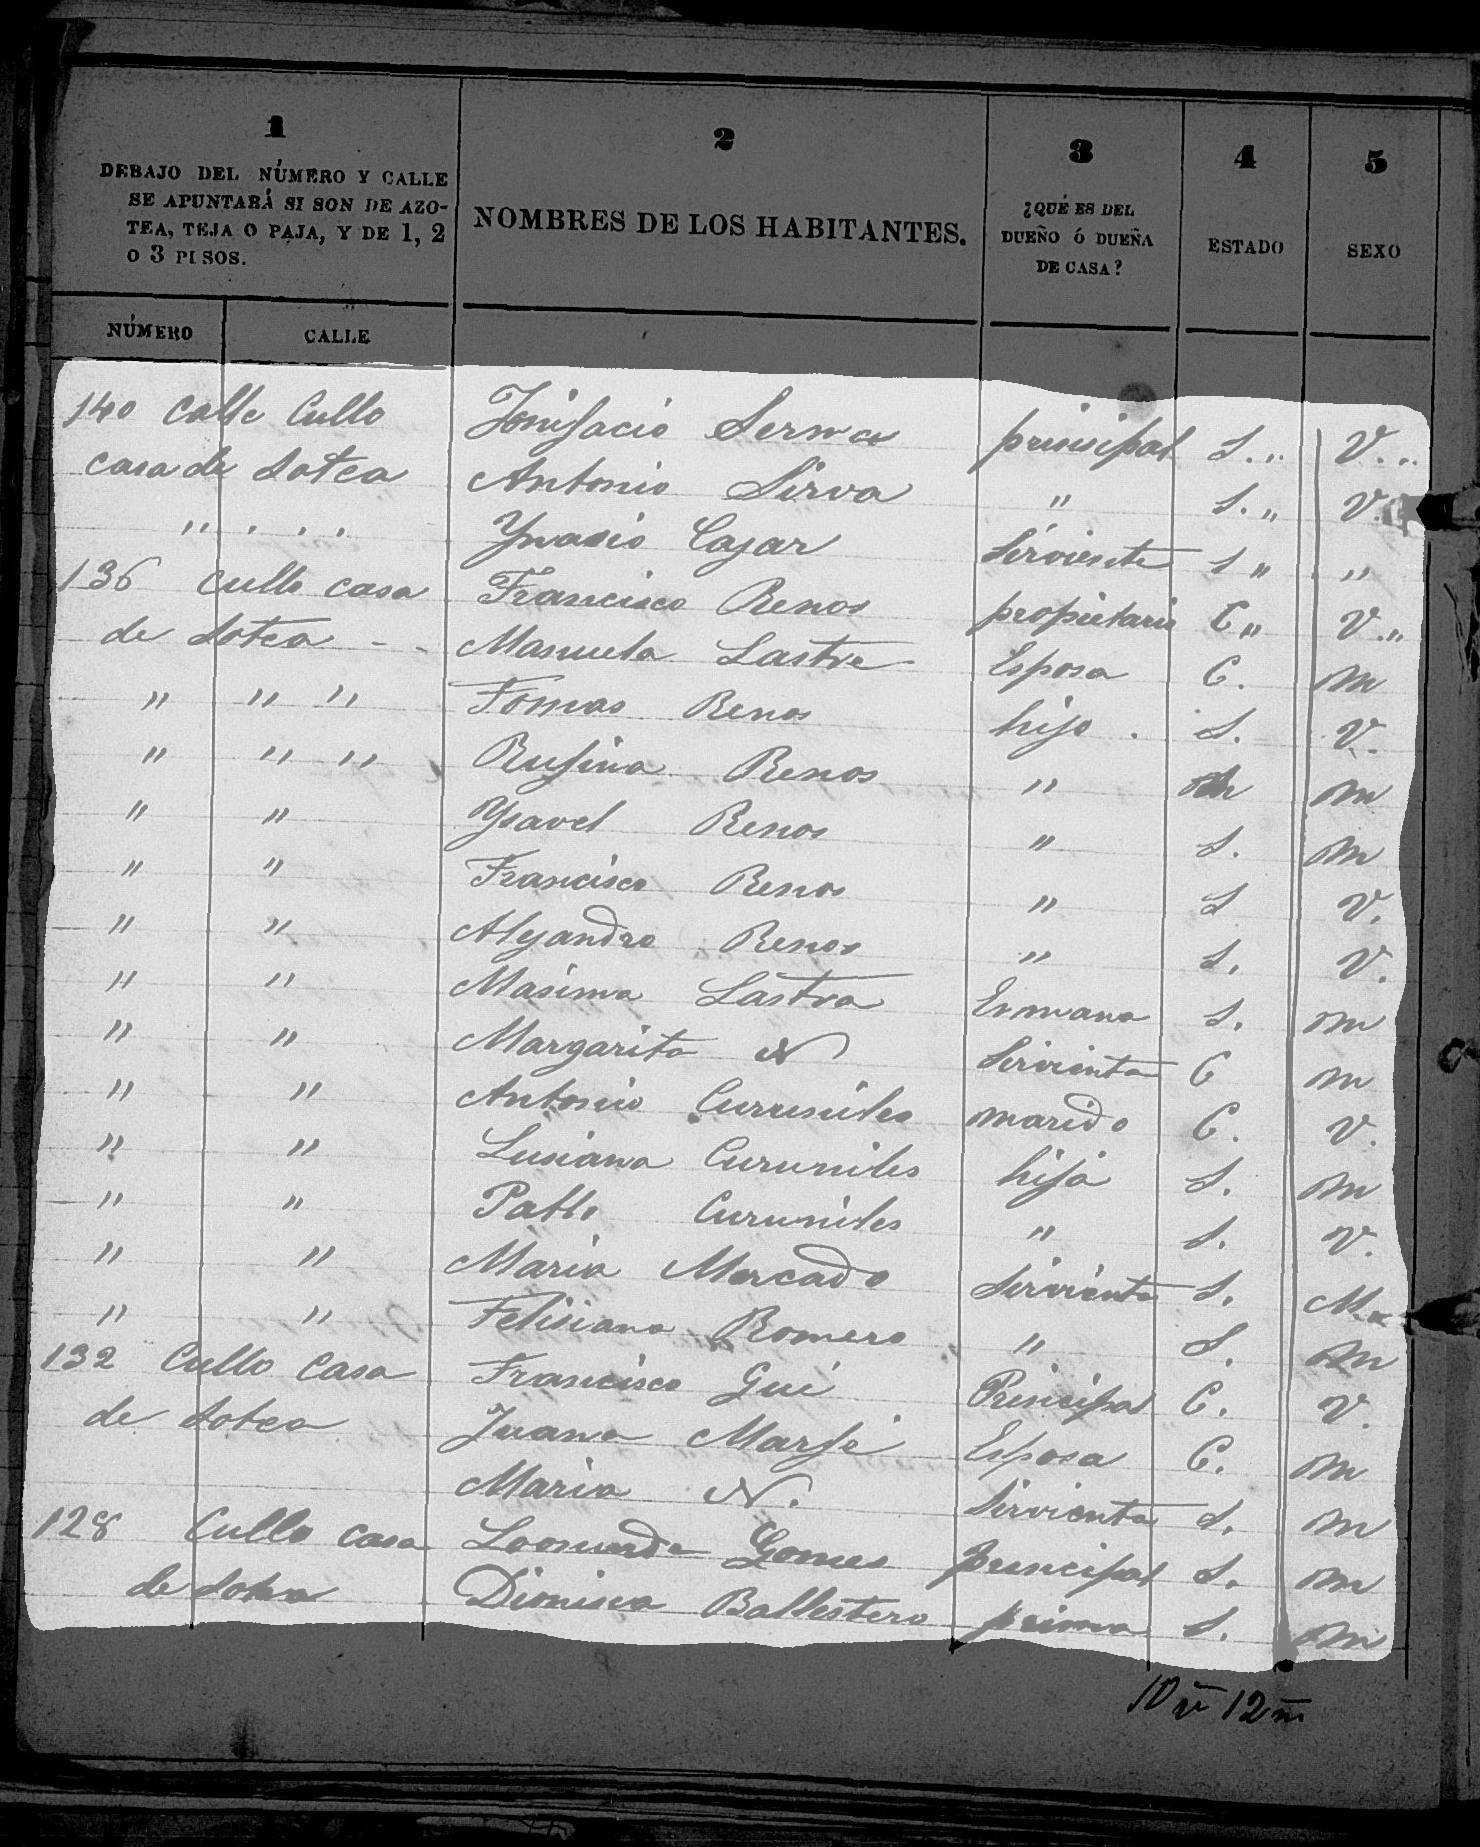 1
DEBAJO DEL NÚMERO Y CALLE
SE APUNTARÁ SI SON DE AZO-
TEA, TEJA O PAJA, Y DE 1, 2
O 3 PISOS.
2
NOMBRES DE LOS HABITANTES.
3
¿QUÉ ES DEL
DUEÑO Ó DUEÑA
DE CASA?
4
ESTADO
5
SEXO
NÚMERO CALLE
140 calle Cullo Bonifacio Serna principal S. „ V. „
casa de Sotea Antonio Sirva " S. „ V.
" . . . Ynasio Cajar Sirviente S " "
136 cullo casa Francisco Renos propietario C „ V. „
de Sotea - - Manuela Lastre Esposa C. m
" " " Tomas Renos hijo . S. V.
" " " Rufina Renos " m
" " Ysavel Renos " S. m
" " Francisco Renos " S V.
" " Alejandro Renos " S. V.
" " Masima Lastra Ermana S. m
" " Margarita N Sirvienta C m
" " Antonio Curuniles marido C. V.
" " Lusiana Curuniles hija S. m
" " Pablo Curuniles " S. V.
" " Maria Mercado Sirvienta S. M
" " Felisiana Romero " S. m
132 Cullo Casa Francisco Gui Principal C. V.
de Sotea Juana Marfé Esposa C. m
Maria N. Sirvienta S. m
128 Cullo casa Leonarda Gomes principal S. m
de Sotea Dionisia Ballestero prima S. m
10 v 12 m